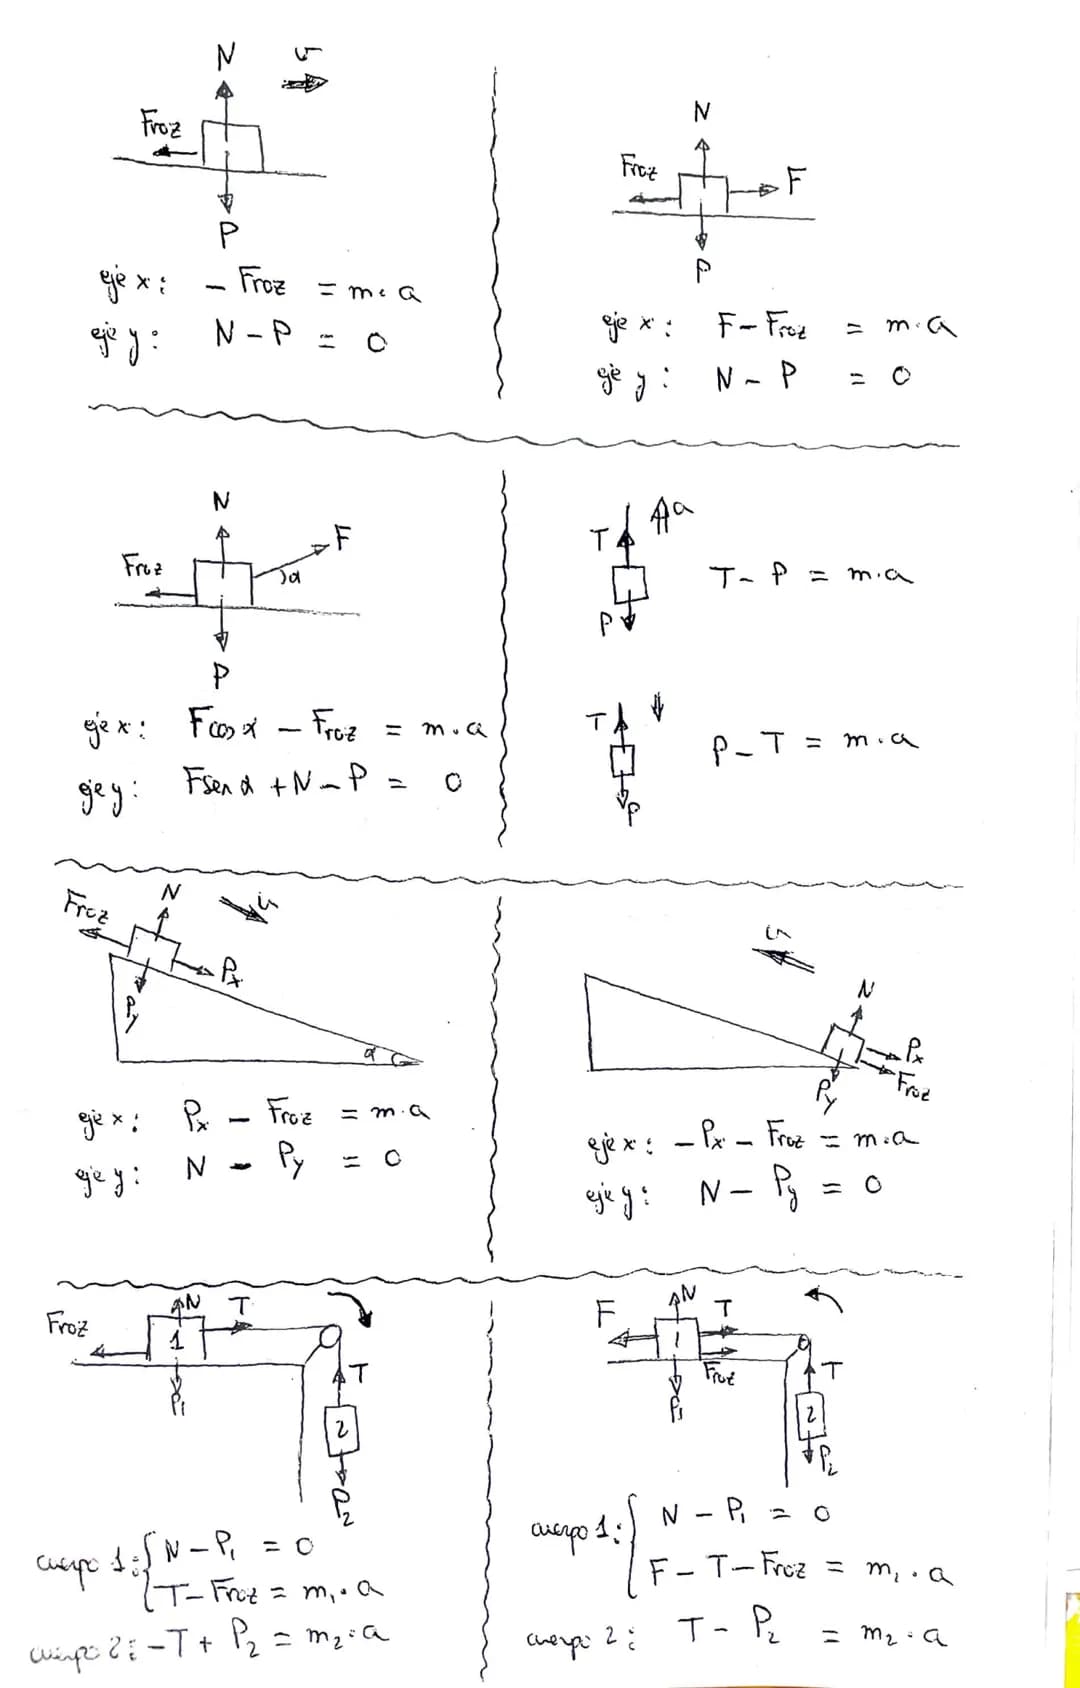 N
v
Froz
P
eje x: - Froz = m·a
eje y: N - P = 0
N
Froz
F
P
eje x: F - Froz = m·a
eje y: N - P = 0
N
F
Froz
α
P
eje x: F cos α - Froz = m·a
eje y: F sen α + N - P = 0
T
a
P
T - P = m·a
T
P
P - T = m·a
Froz
N
v
Px
Py
α
eje x: Px - Froz = m·a
eje y: N - Py = 0
v
N
Px
Froz
Py
eje x: - Px - Froz = m·a
eje y: N - Py = 0
Froz
N
T
1
P₁
T
2
P₂
cuerpo 1: { N - P₁ = 0
T - Froz = m₁·a
cuerpo 2: -T + P₂ = m₂·a
F
N
T
1
Froz
P₁
T
2
P₂
cuerpo 1: { N - P₁ = 0
F - T - Froz = m₁·a
cuerpo 2: T - P₂ = m₂·a